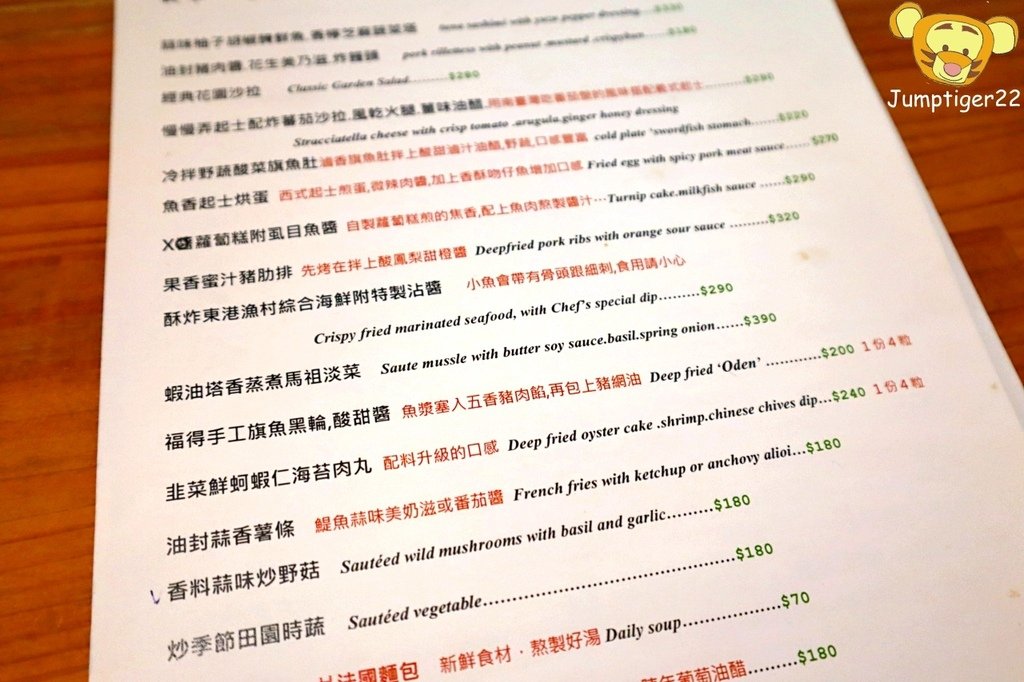 Jumptiger22
蒜味柚子胡椒醃鮮魚.香檬芝麻蔬菜塔 tuna sashimi with yuzu pepper dressing.....$320
油封豬肉醬.花生美乃滋.炸饅頭 pork rillettess with peanut .mustard .crispybun......$180
經典花園沙拉 Classic Garden Salad..........$280
慢慢弄起士配炸蕃茄沙拉.風乾火腿.薑味油醋.用南臺灣吃蕃茄盤的風味搭配義式起士............$290
Stracciatella cheese with crisp tomato .arugula.ginger honey dressing
冷拌野蔬酸菜旗魚肚 滷香旗魚肚拌上酸甜滷汁油醋,野蔬,口感豐富 cold plate ‘swordfish stomach.......$220
魚香起士烘蛋 西式起士煎蛋,微辣肉醬,加上香酥吻仔魚增加口感 Fried egg with spicy pork meat sauce......$270
X 蘿蔔糕附虱目魚醬 自製蘿蔔糕煎的焦香,配上魚肉熬製醬汁…Turnip cake.milkfish sauce ......$290
果香蜜汁豬肋排 先烤在拌上酸鳳梨甜橙醬 Deepfried pork ribs with orange sour sauce .........$320
酥炸東港漁村綜合海鮮附特製沾醬 小魚會帶有骨頭跟細刺,食用請小心
Crispy fried marinated seafood, with Chef’s special dip.........$290
蝦油塔香蒸煮馬祖淡菜 Saute mussle with butter soy sauce.basil.spring onion......$390
福得手工旗魚黑輪,酸甜醬 魚漿塞入五香豬肉餡,再包上豬網油 Deep fried ‘Oden’ ............$200 1份4粒
韭菜鮮蚵蝦仁海苔肉丸 配料升級的口感 Deep fried oyster cake .shrimp.chinese chives dip...$240 1份4粒
油封蒜香薯條 鯷魚蒜味美奶滋或番茄醬 French fries with ketchup or anchovy alioi...$180
香料蒜味炒野菇 Sautéed wild mushrooms with basil and garlic.........$180
炒季節田園時蔬 Sautéed vegetable......................................$180
新鮮食材．熬製好湯 Daily soup...................$70
法國麵包 年葡萄油醋.........$180